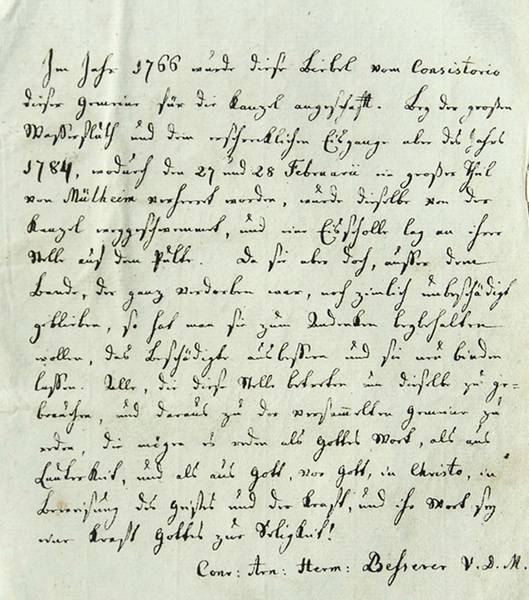 Im Jahr 1766 wurde diese Biebel vom Consistorio
dieser Gemeine für die Kanzel angeschafft. Bey der großen
Wasserfluth und dem erschrecklichen Eisgange aber des Jahres
1784, wodurch den 27 und 28 Februarii ein großer Theil
von Mülheim verheeret worden, wurde dieselbe von der
Kanzel weggeschwemmet, und eine Eisscholle lag an ihrer
Stelle auf dem Pulte. Da sie aber doch, ausser dem
Bande, der ganz verdorben war, noch zimlich unbeschädigt
geblieben, so hat man sie zum Andenken beybehalten
wollen, das Beschädigte ausbessern und sie neu binden
lassen. Alle, die diese Stelle betreten um dieselbe zu ge=
brauchen, und daraus zu der versammelten Gemeine zu
reden, die mögen es reden als Gottes Wort, als aus
Lauterkeit, und als aus Gott, vor Gott, in Christo, in
Beweisung des Geistes und der Kraft, und ihr Wort sey
eine Kraft Gottes zur Seligkeit!
Conr: Arn: Herm: Besserer V. D. M.